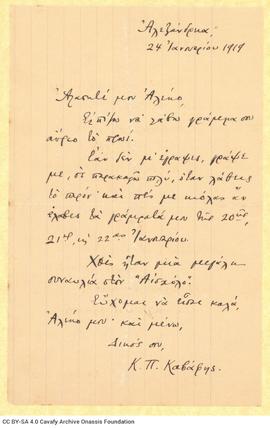 Ἀλεξάνδρεια,
24 Ἰαννουρίου 1919
Ἀγαπητέ μου Ἀλέκο,
Ἐλπίζω νὰ λάβω γράμμα σου
αὔριο τὸ πρωΐ.
Ἐὰν δὲν μ' ἔγραψες, γράψε
με, σὲ παρακαλῶ πολύ, ὅταν λάβεις
τὸ παρόν· καὶ πές με κιόλας ἂν
ἔλαβες τὰ γράμματά μου τῆς 20ης,
21ης, κ 22ας Ἰαννουαρίου.
Χθὲς ἦταν μιὰ μεγάλη
συναυλία στὸν
Εὔχομαι νὰ εἶσαι καλά,
Ἀλέκο μου· καὶ μένω,
Δικός σου,
Κ. Π. Καβάφης.
CC BY-SA 4.0 Cavafy Archive Onassis Foundation